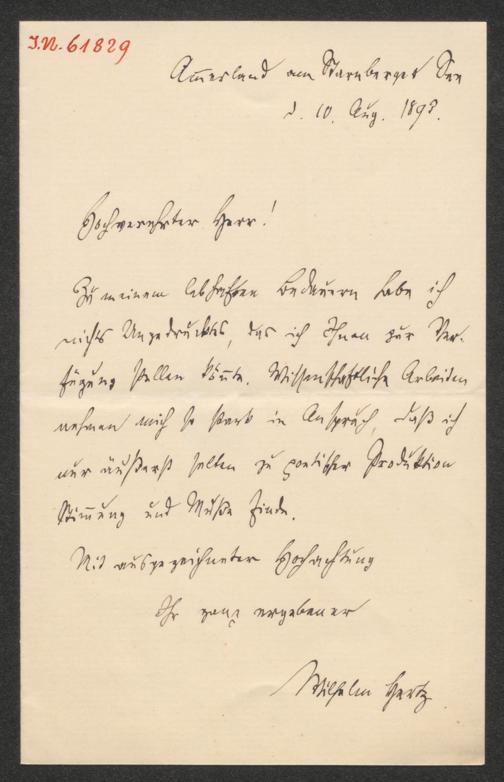 J.N. 61829
Am̅erland am Starnberger See
d. 10. Aug. 1893.
Hochverehrter Herr!
Zu meinem lebhaften Bedauern habe ich
nichts Ungedrucktes, das ich Ihnen zur Ver-
fügung stellen kön̅te. Wissenschaftliche Arbeiten
nehmen mich so stark in Anspruch, daß ich
nur äußerst selten zu poetischer Produktion
Stim̅ung und Muße finde.
Mit ausgezeichneter Hochachtung
Ihr ganz ergebener
Wilhelm Hertz